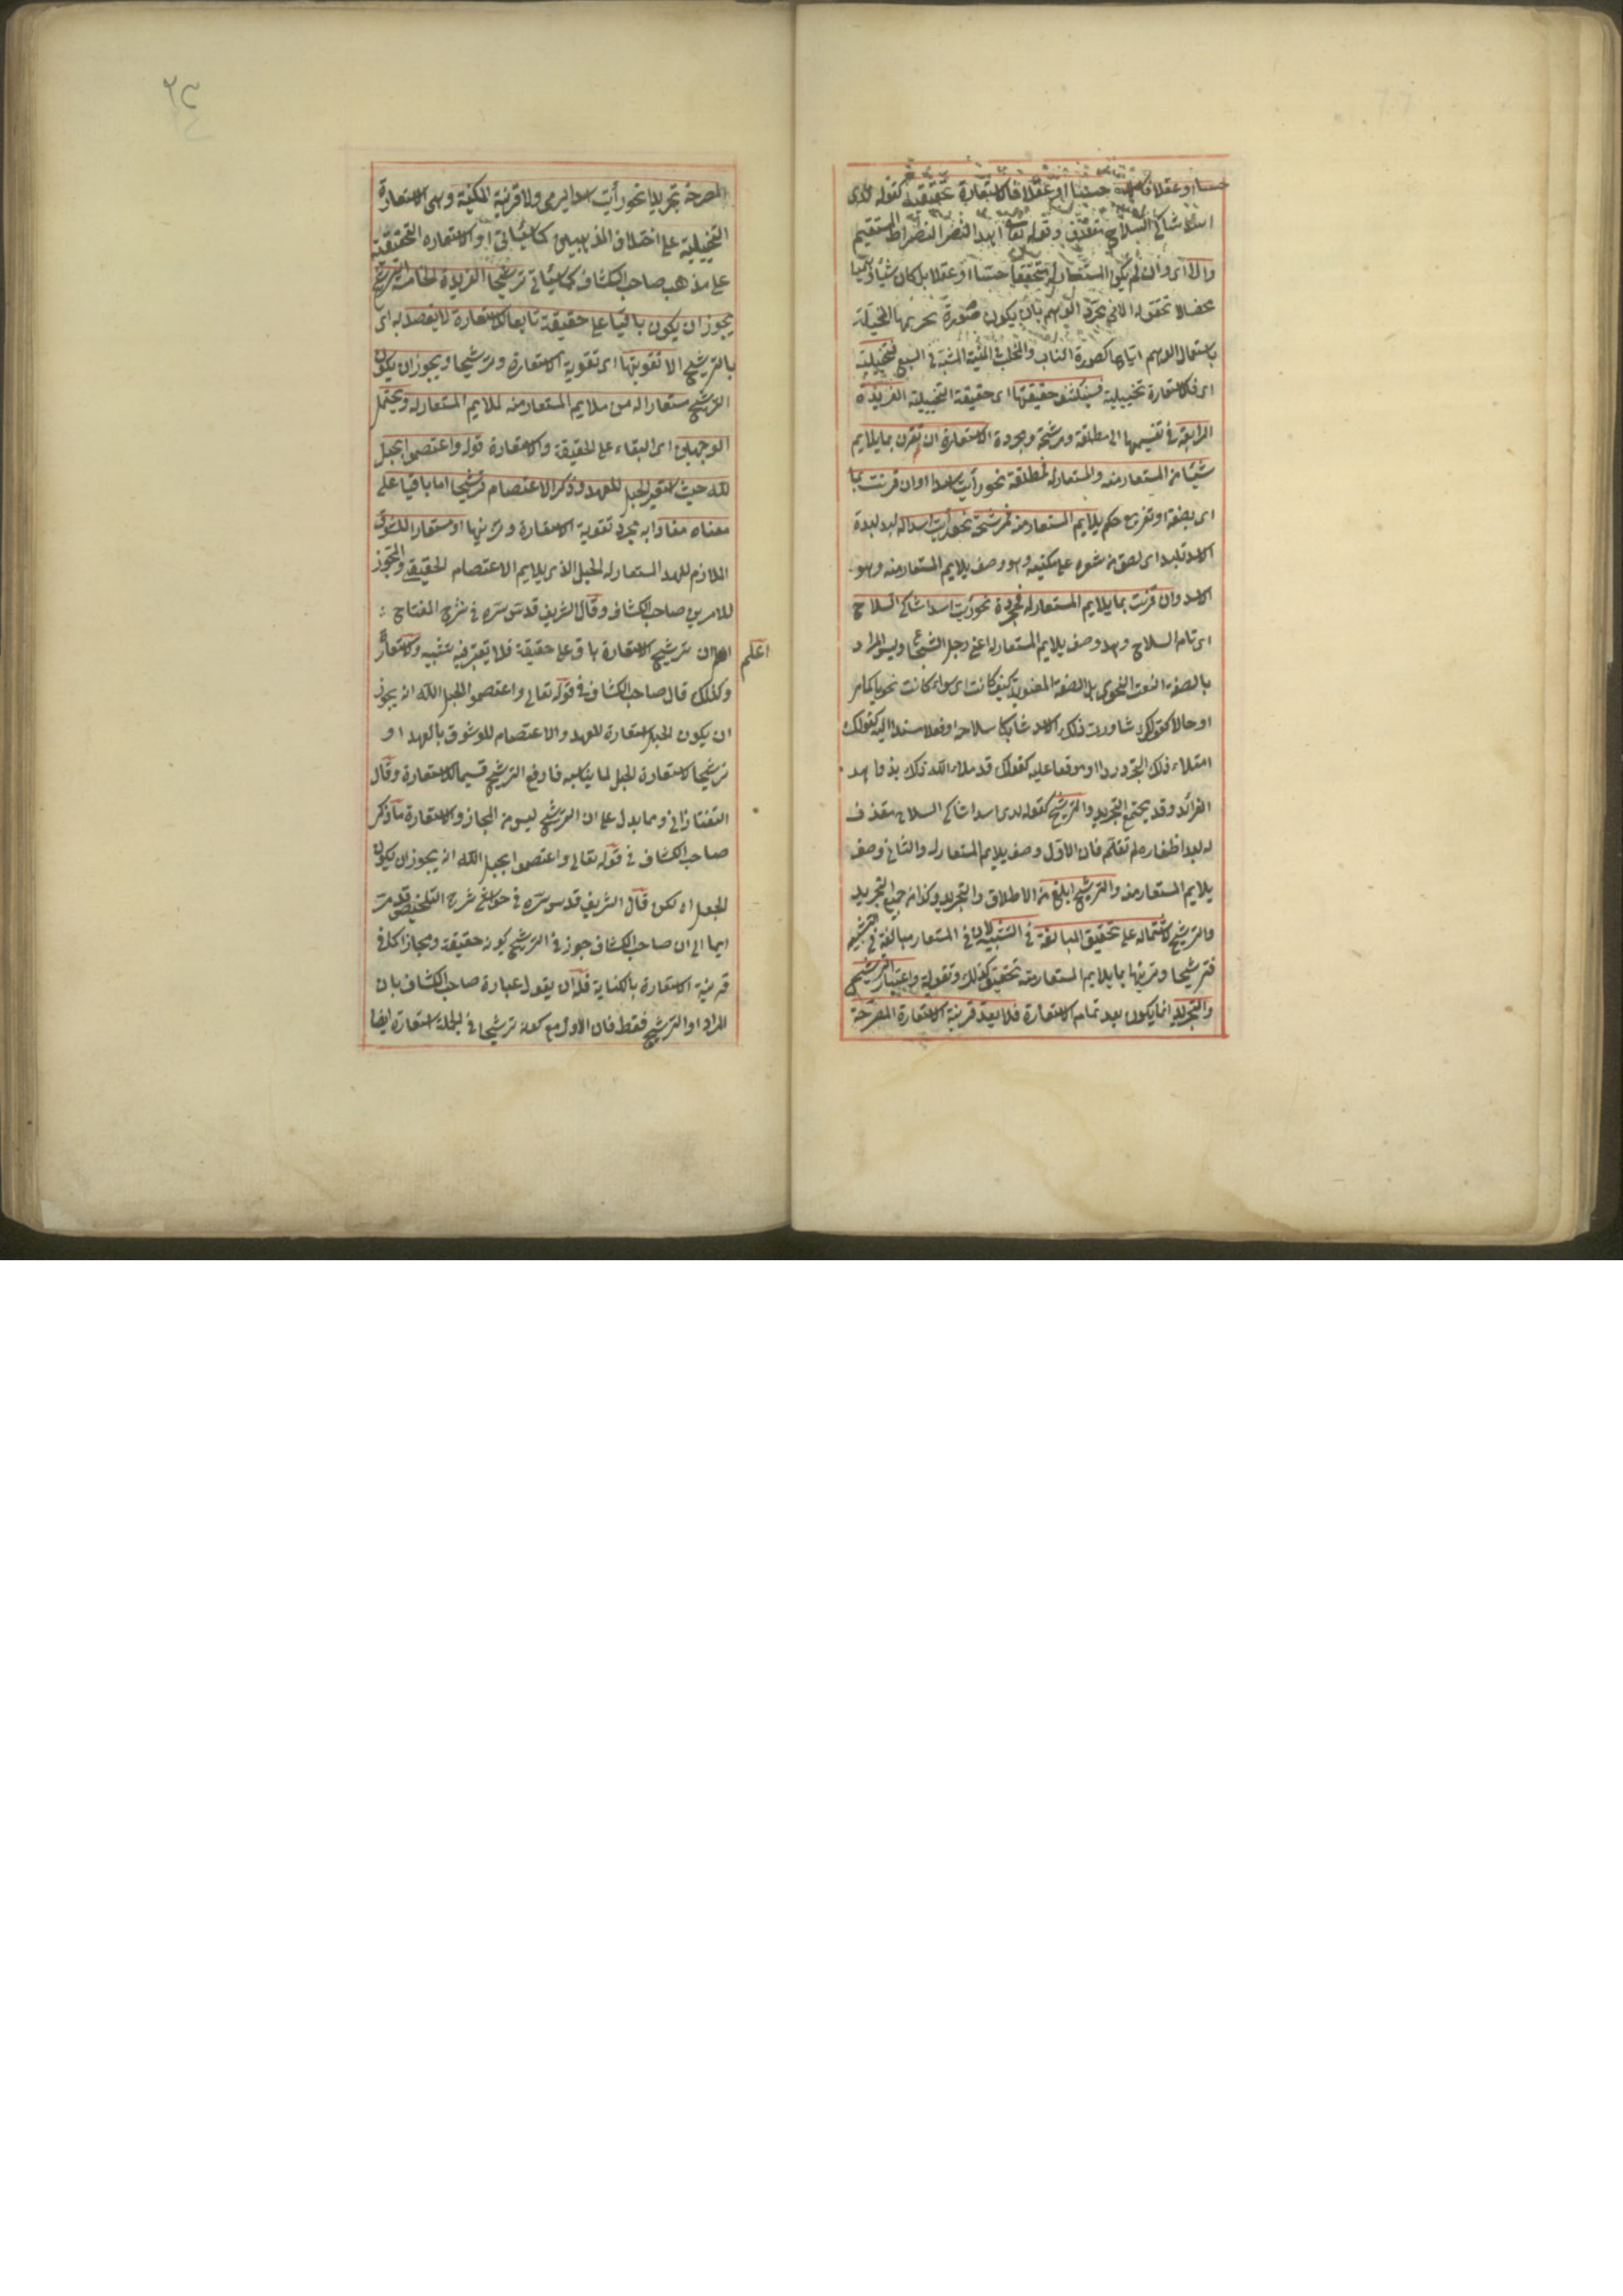 حسا او عقلا فالاستعارة تحقيقية كقوله لدى
اسد شاكى السلاح مقذف وقوله تعالى اهدنا الصراط المستقيم
والا اى وان لم يكن المستعار له متحققا حسا او عقلا بل كان شيئا وهميا
محضا لا تحقق له الا فى مجرد الوهم بان يكون صورة
باستعمال الوهم اياها كصورة الناب والمخلب فى المنية المشبه فى السبع فتخييلية
اى فالاستعارة تخييلية فسينكشف حقيقتها اى حقيقة التخييلية الفريدة
الرابعة فى تقسيمها الى مطلقة ومرشحة ومجردة الاستعارة ان لم تقرن بما يلايم
شيئا من المستعار منه والمستعار له فمطلقة نحو رأيت اسدا وان قرنت بما
اى بصفة او تفريع حكم يلايم المستعار منه فمرشحة نحو رأيت اسدا له لبد لبدة
الاسد تلبد اى لصق من شعره على منكبيه وهو وصف يلايم المستعار منه وهو
الاسد وان قرنت بما يلايم المستعار له فمجردة نحو رأيت اسدا شاكى السلاح
اى تام السلاح وهو وصف يلايم المستعار له اعنى رجل الشجاع وليس المراد
بالصفة النعت النحوى بل الصفة المعنوية كيف كانت اى سواء كانت نحويا كما مر
او حالا كقولك شاورت ذلك الاسد شاكيا سلاحه او فعلا مسندا اليه كقولك
امتلاء ذلك البحر دررا او موقعا عليه كقولك قد ملاء الله ذلك بذواهد
الفرائد وقد يجتمع التجريد والترشيح كقوله لدى اسد شاكى السلاح مقذف
له لبد اظفاره لم تقلم فان الاول وصف يلايم المستعار له والثانى وصف
يلايم المستعار منه والترشيح ابلغ من الاطلاق والتجريد وكذا من جمع التجريد
والترشيح لاشتماله على تحقيق المبالغة فى التشبيه لان فى المستعار مبالغة فى التشبيه
فترشيحها وتزيينها بما يلايم المستعار منه تحقيق لذلك وتقوية واعتبار الترشيح
والتجريد انما يكون بعد تمام الاستعارة فلا يعد قرينة الاستعارة المصرحة
٢٣
المصرحة تجريدا نحو رأيت اسدا يرمى ولا قرينة المكنية وهى الاستعارة
التخييلية على اختلاف المذهبين كما سيأتى او الاستعارة التحقيقية
على مذهب صاحب الكشاف كما سيأتى ترشيحا الفريدة الخامسة الترشيح
يجوز ان يكون باقيا على حقيقته تابعا للاستعارة لا يقصد به اى
بالترشيح الا تقويتها اى تقوية الاستعارة وترشيحا ويجوز ان يكون
الترشيح مستعارا له من ملايم المستعار منه لملايم المستعار له ويحتمل
الوجهين اى البقاء على الحقيقة والاستعارة قوله واعتصموا بحبل
الله حيث استعير الحبل للعهد وذكر الاعتصام ترشيحا اما باقيا على
معناه مفادا به مجرد تقوية الاستعارة وتزيينها او مستعارا للوثوق
الملازم للعهد المستعار له الحبل الذى يلايم الاعتصام الحقيقى والمجوز
للامرين صاحب الكشاف وقال الشريف قدس سره فى شرح المفتاح
اعلم
ان ترشيح الاستعارة باق على حقيقة فلا يعتبر فيه تشبيه واستعارة
وكذلك قال صاحب الكشاف فى قوله تعالى واعتصموا بحبل الله انه يجوز
ان يكون الحبل استعارة للعهد والاعتصام للوثوق بالعهد او
ترشيحا لاستعارة الحبل لما يناسبه فاوقع الترشيح قسيما للاستعارة وقال
التفتازانى ومما يدل على ان الترشيح ليس من المجاز والاستعارة ما ذكر
صاحب الكشاف فى قوله تعالى واعتصموا بحبل الله انه يجوز ان يكون
الحبل اه لكن قال الشريف قدس سره فى حواشى شرح التلخيص
ايما الى ان صاحب الكشاف جوز فى الترشيح كونه حقيقة ومجازا كما فى
قرينة الاستعارة بالكناية فله ان يقول عبارة صاحب الكشاف بان
المراد او الترشيح فقط فان الاول مع كونه ترشيحا فى الجملة استعارة ايضا